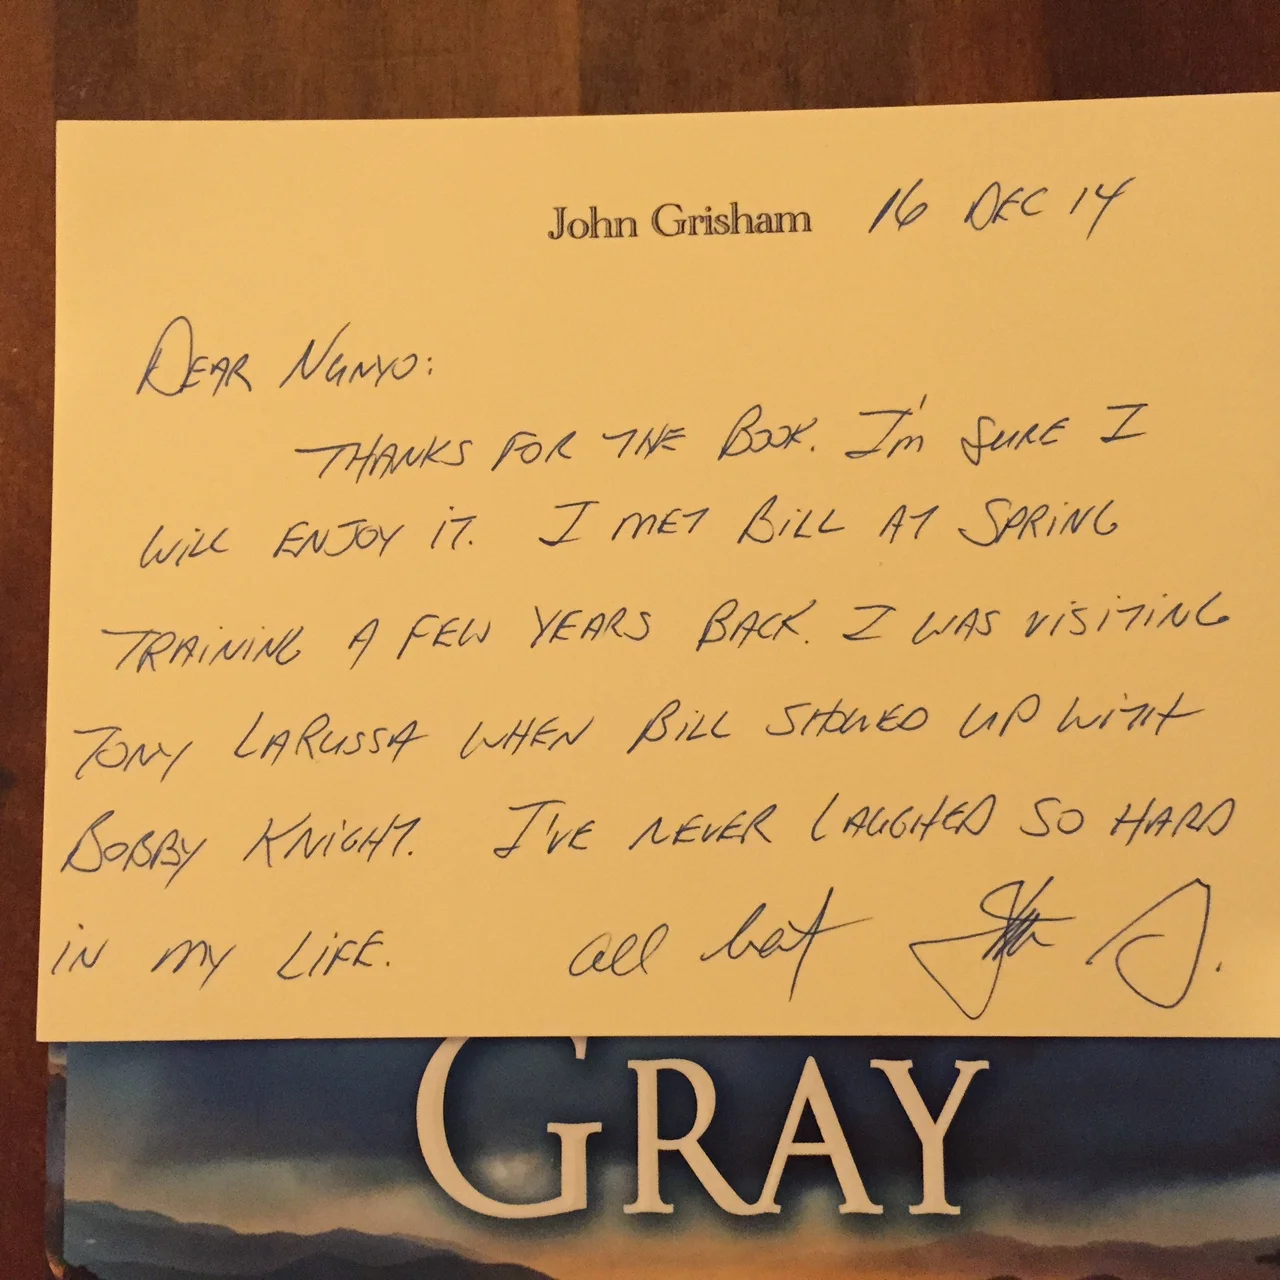 John Grisham 16 DEC 14
DEAR NGNYO:
THANKS FOR THE BOOK. I'm SURE I
WiLL ENJOY iT. I MET BiLL AT SPRiNG
TRAiNiNG A FEW YEARS BACK. I WAS ViSiTiNG
TONY LARUSSA WHEN BiLL SHOWED UP WiTH
BOBBY KNiGHT. I'VE NEVER LAUGHED SO HARD
iN MY LiFE. all best
GRAY